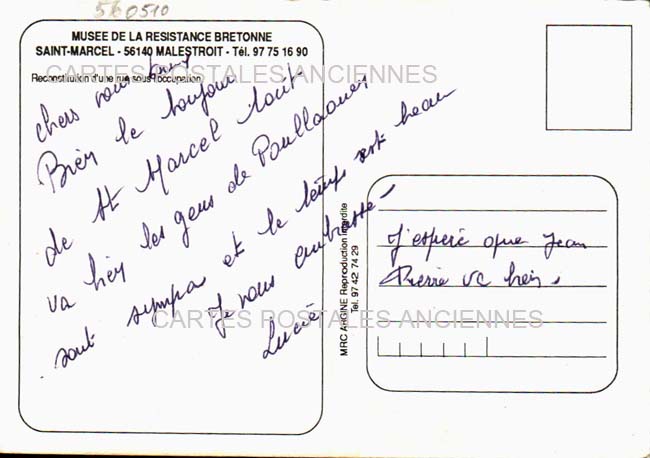 560510
MUSEE DE LA RESISTANCE BRETONNE
SAINT-MARCEL - 56140 MALESTROIT - Tél. 97 75 16 90
CARTES POSTALES ANCIENNES
Reconstitution d'une rue sous l'occupation
chers vous tous
Bien le bonjour
de St Marcel tout
va bien les gens de Poullaouen
sont sympas et le temps est beau
Je vous embrasse
Lucie
CARTES POSTALES ANCIENNES
MRC ARGINE Reproduction interdite
Tel. 97 42 74 29
J'espère que Jean
Pierre va bien